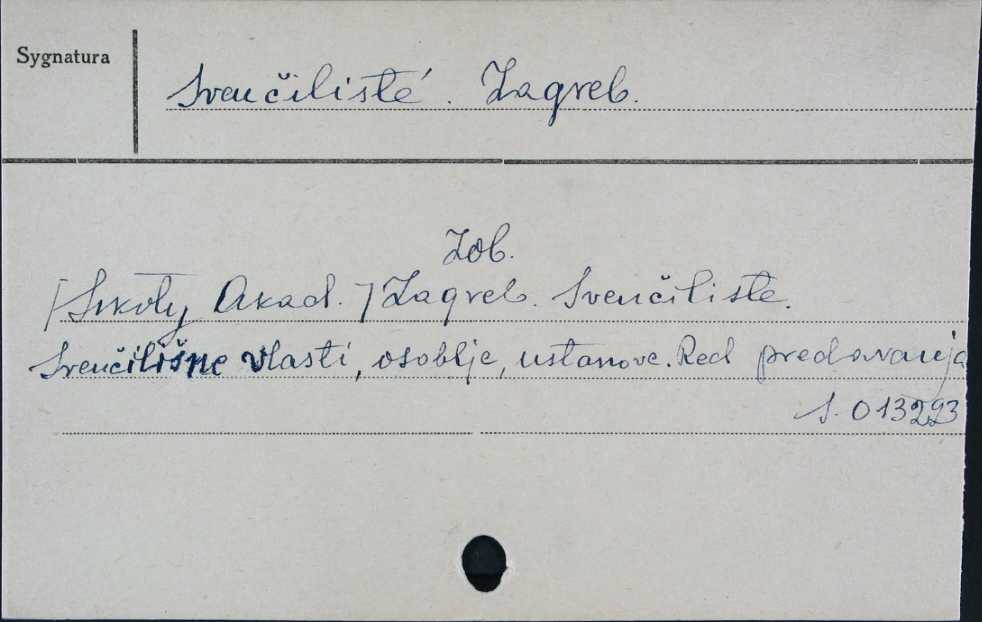 Sygnatura
Sveučilišté. Zagreb.
Zob.
[Szkoły Akad.] Zagreb. Sveučilište.
Sveučilišne vlasti, osoblje, ustanove. Red predavanja
S. 013293